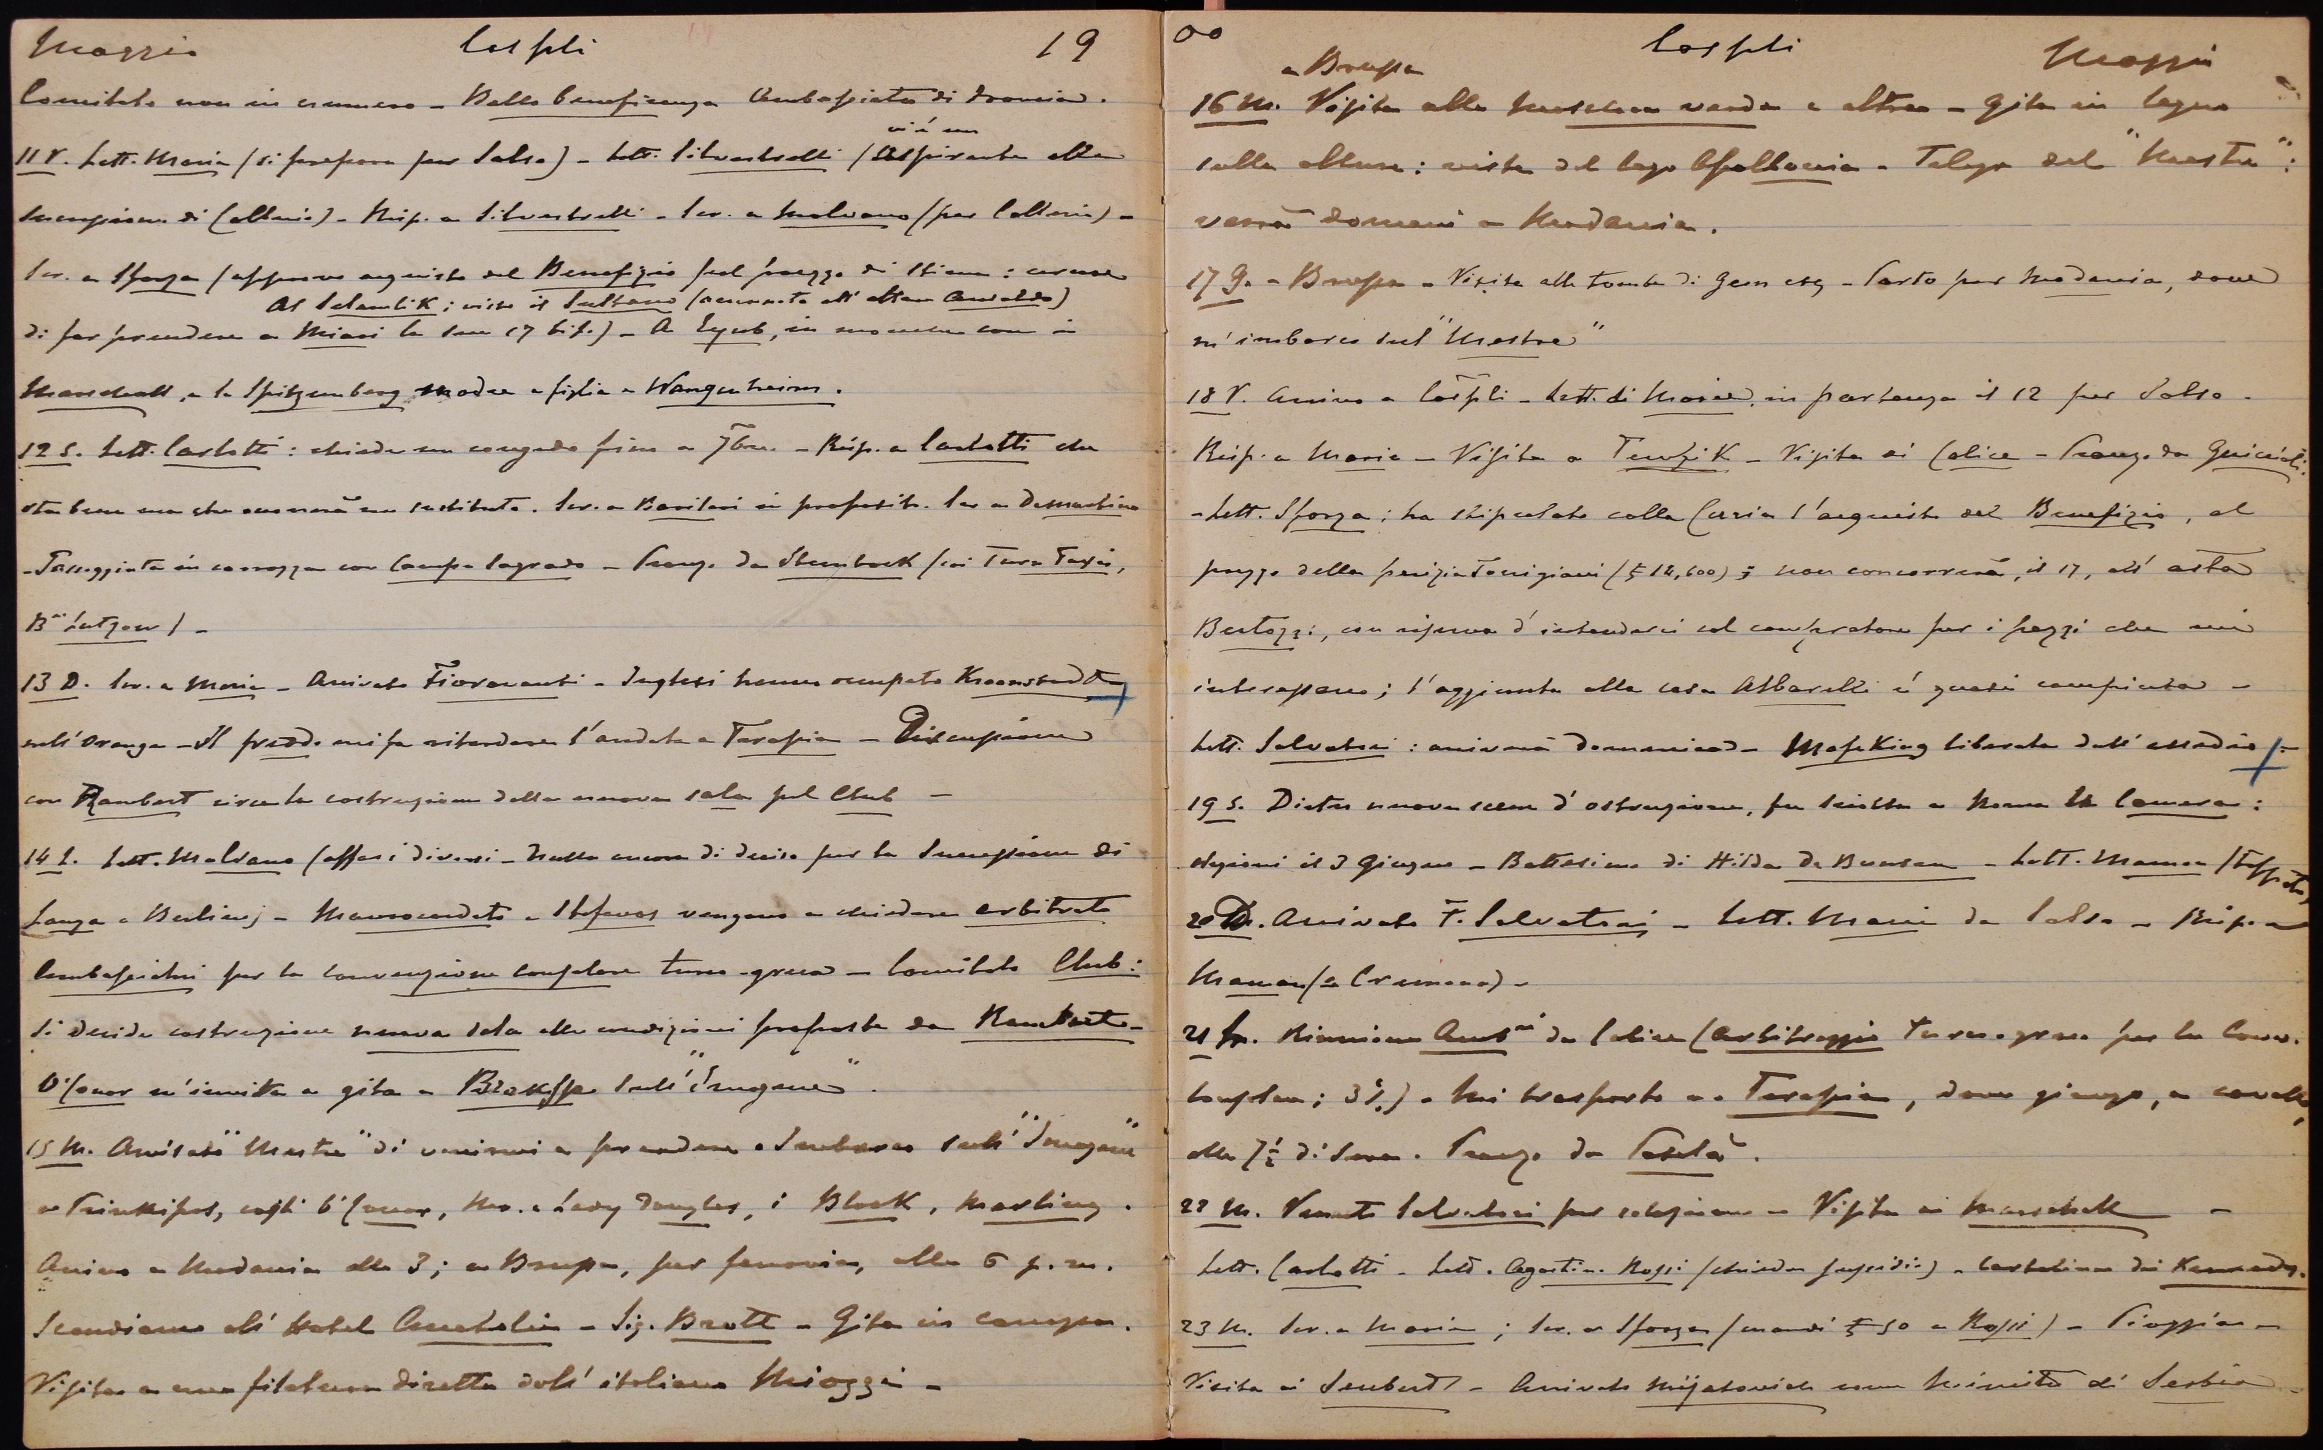 Maggio Cospli 19
Comitato non in numero - Ballo beneficenza Ambasciata di Francia.
vi è un
11 V. Lett. Maria (si prepara per Salso) - Lett. Silvestrelli (aspirante alla
Successione di Collenio) - Risp. a Silvestrelli - Scr. a Malvano (per Collenio) -
Scr. a Sforza (approvo acquisto del Benefizio pel prezzo di stima: cercare
Al Selamlik; visto il Sultano (accennato all'affare Ansaldo)
di far prendere a Miari la sua 17 bis.) - A Eyub, in mouche con i
Marschall, e la Spitzemberg madre e figlia e Wangenheim.
12 S. Lett. Carlotti: chiede un congedo fino a 7bre. - Risp. a Carlotti che
sta bene ma che occorrerà un sostituto. Scr. a Barilari in proposito. Scr. a Demartino
- Passeggiata in carrozza con Campo Sagrado - Pranzo da Stembock (coi Turn Taxis,
Bne Lutzow) -
13 D. Scr. a Maria - Arrivato Fioravanti - Inglesi hanno occupato Kroonstadt
nell'Orange - Il freddo mi fa ritardare l'andata a Terapia - Discussione
con Rambert circa la costruzione della nuova sala pel Club -
14 L. Lett. Malvano (affari diversi - Nulla ancora di deciso per la Successione di
Lanza a Berlino) - Maurocordato e Stefanos vengono a chiedere arbitrato
Ambasciatori per la convenzione consolare turco-greca - Comitato Club:
Si decide costruzione nuova sala alle condizioni proposte da Rambert -
O'Conor m'invita a gita a Brussa sull' "Imogene".
15 M. Avvisato "Mestre" di venirmi a prendere. Imbarco sull' "Imogene"
a Prinkipos, cogli O'Conor, Mr. e Lady Douglas, i Block, Marling.
Arrivo a Mudania alle 3; a Brussa, per ferrovia, alle 6 p. m.
Scendiamo all'Hotel Anatolia - Sig. Brott - Gita in campagna.
Visita a una filatura diretta dall'italiano Miozzi -
00 Cospli Maggio
a Brussa
16 M. Visita alla Moschea verde e altre - Gita in legno
sulle alture: vista del lago Apollonia - Telegr. del "Mestre":
verrà domani a Mudania.
17 G. a Brussa - Visita alle tombe di Gem etc - Parto per Mudania, dove
m'imbarco sul "Mestre"
18 V. Arrivo a Cospli - Lett. di Maria, in partenza il 12 per Salso -
Risp. a Maria - Visita a Tewfik - Visita ai Calice - Pranzo da
- Lett. Sforza: ha stipulato colla Curia l'acquisto del Benefizio, al
prezzo della perizia Tonigiani (₤ 12,600) e non concorrerà, il 17, all'asta
Bertozzi, con riserva d'intendersi col compratore per i pezzi che mi
interessano; l'aggiunta alla casa Albarelli è quasi compiuta -
Lett. Salvatori: arriverà domenica - Mafeking liberata dall'assedio -
19 S. Dietro nuova scena d'ostruzione, fu sciolta a Roma la Camera:
elezioni il 3 Giugno - Battesimo di Hilda de Bunsen - Lett. Maman
20 D. Arrivato F. Salvatori - Lett. Maria da Salso - Risp. a
Maman (a Cremona) -
21 L. Riunione Ambri da Calice (Arbitraggio Turco-greco per la Conv.
consolare; 3 %) - Mi trasporto a Terapia, dove giungo, a cavallo,
alle 7½ di sera. Pranzo da
22 M. Venuto Salvatori per colazione - Visita ai Marschall -
Lett. Carlotti - Lett. Agostino Rossi (chiede sussidio) - Cartolina dei Kennedy.
23 M. Scr. a Maria; Scr. a Sforza (mandi ₤ 50 a Rossi) - Pioggia -
Visita ai - Arrivato Mijatovich come Ministro di Serbia -